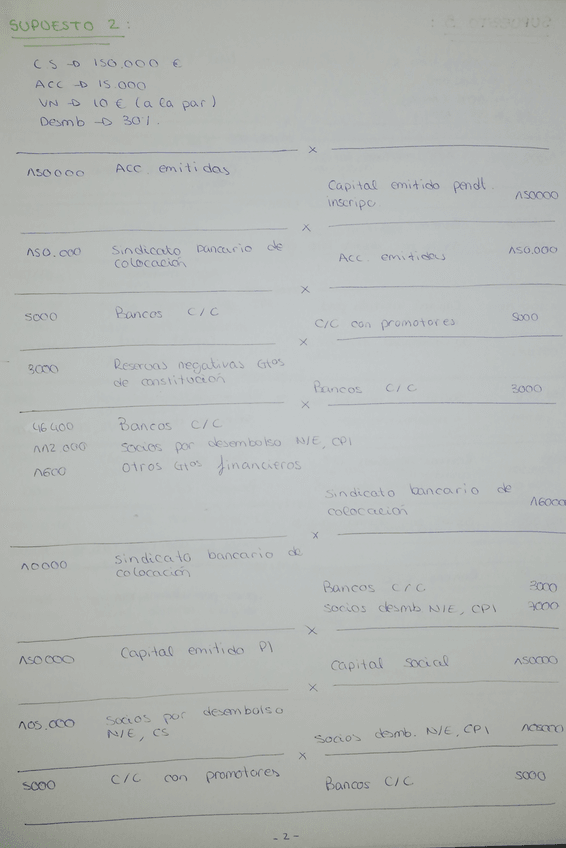 SUPUESTO 2:
CS → 150.000 €
ACC → 15.000
VN → 10 € (a la par)
Desmb → 30%.
150000 Acc. emitidas
Capital emitido pendt. inscripc 150000
150.000 Sindicato bancario de colocación
Acc emitidas 150.000
5000 Bancos C/C
C/C con promotores 5000
3000 Reservas negativas Gtos de constitución
Bancos C/C 3000
46400 Bancos C/C
112000 Socios por desembolso N/E, CPI
1600 Otros Gtos financieros
Sindicato bancario de colocación 16000
10000 Sindicato bancario de colocación
Bancos C/C 3000
Socios desmb N/E, CPI 7000
150000 Capital emitido PI
Capital social 150000
105.000 Socios por desembolso N/E, CS
Socios desmb. N/E, CPI 105000
5000 C/C con promotores
Bancos C/C 5000
- 2 -